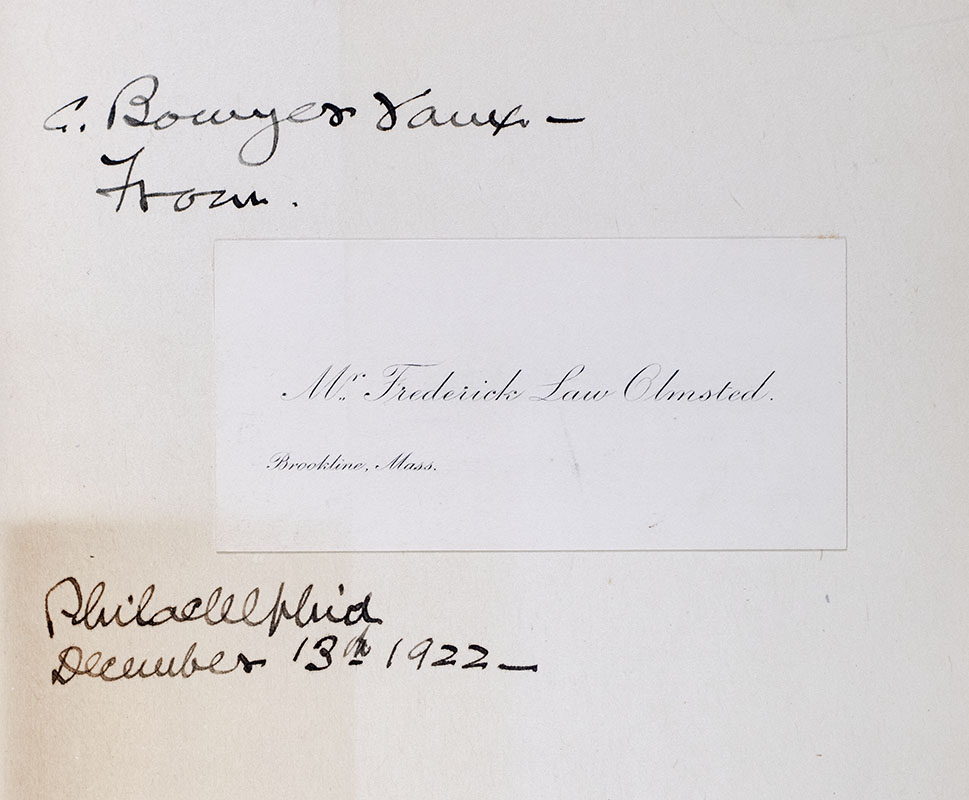 C. Bowyer Vaux. —
From.
Mr. Frederick Law Olmsted.
Brookline, Mass.
Philadelphia
December 13th 1922 —